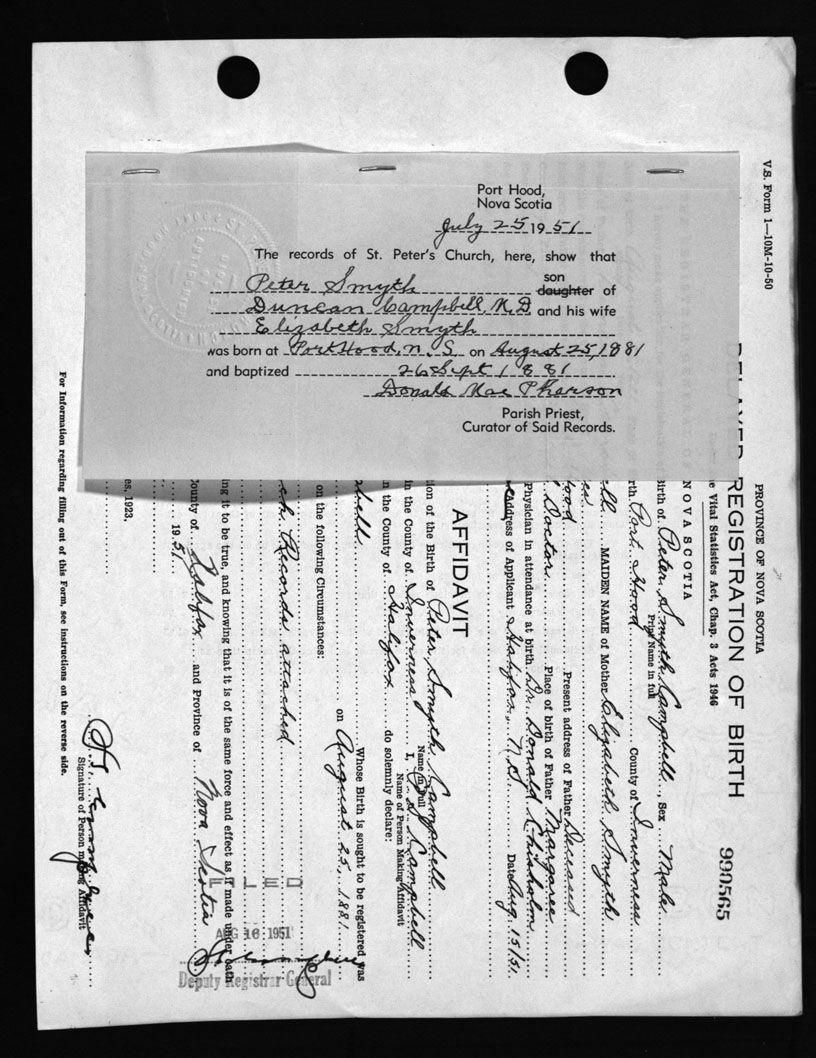 Port Hood,
Nova Scotia
July 25 1951
The records of St. Peter's Church, here, show that
Peter Smyth son
daughter of
Duncan Campbell, M.D. and his wife
Elizabeth Smyth
was born at Port Hood, N.S. on August 25/1881
and baptized 26 Sept 1881
Donald Mac Pherson
Parish Priest,
Curator of Said Records.
V.S. Form 1—10M-10-50
PROVINCE OF NOVA SCOTIA
REGISTRATION OF BIRTH
990565
Vital Statistics Act, Chap. 3 Acts 1946
NOVA SCOTIA
Birth of Peter Smyth Campbell Sex Male
Print Name in full
Port Hood County of Inverness
MAIDEN NAME of Mother Elizabeth Smyth
Present address of Father Deceased
Doctor Place of birth of Father Margaree
Physician in attendance at birth Dr. Donald Chisholm
Address of Applicant Halifax, N.S. Date Aug 15/51
AFFIDAVIT
ion of the Birth of Peter Smyth Campbell
Name in Full
in the County of Inverness I, Campbell
Name of Person Making Affidavit
in the County of Halifax do solemnly declare:
Whose Birth is sought to be registered was
on August 25 1881
on the following Circumstances:
Records attached
ing it to be true, and knowing that it is of the same force and effect as if made under oath
ounty of Halifax and Province of Nova Scotia
1951
FILED
AUG 16 1951
Deputy Registrar General
es, 1923.
Signature of Person making Affidavit
For Information regarding filling out of this Form, see instructions on the reverse side.